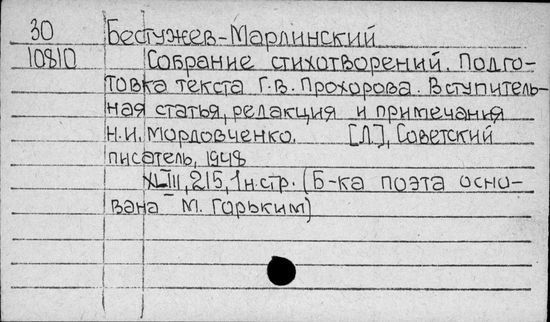 30 Бестужев-Марлинский
10810 Собрание стихотворений. Подго-
товка текста Г.В. Прохорова. Вступитель-
ная статья, редакция и примечания
Н.И. Мордовченко. [Л], Советский
писатель, 1948
XLIII, 215, 1 н.стр. (Б-ка поэта осно-
вана М. Горьким)